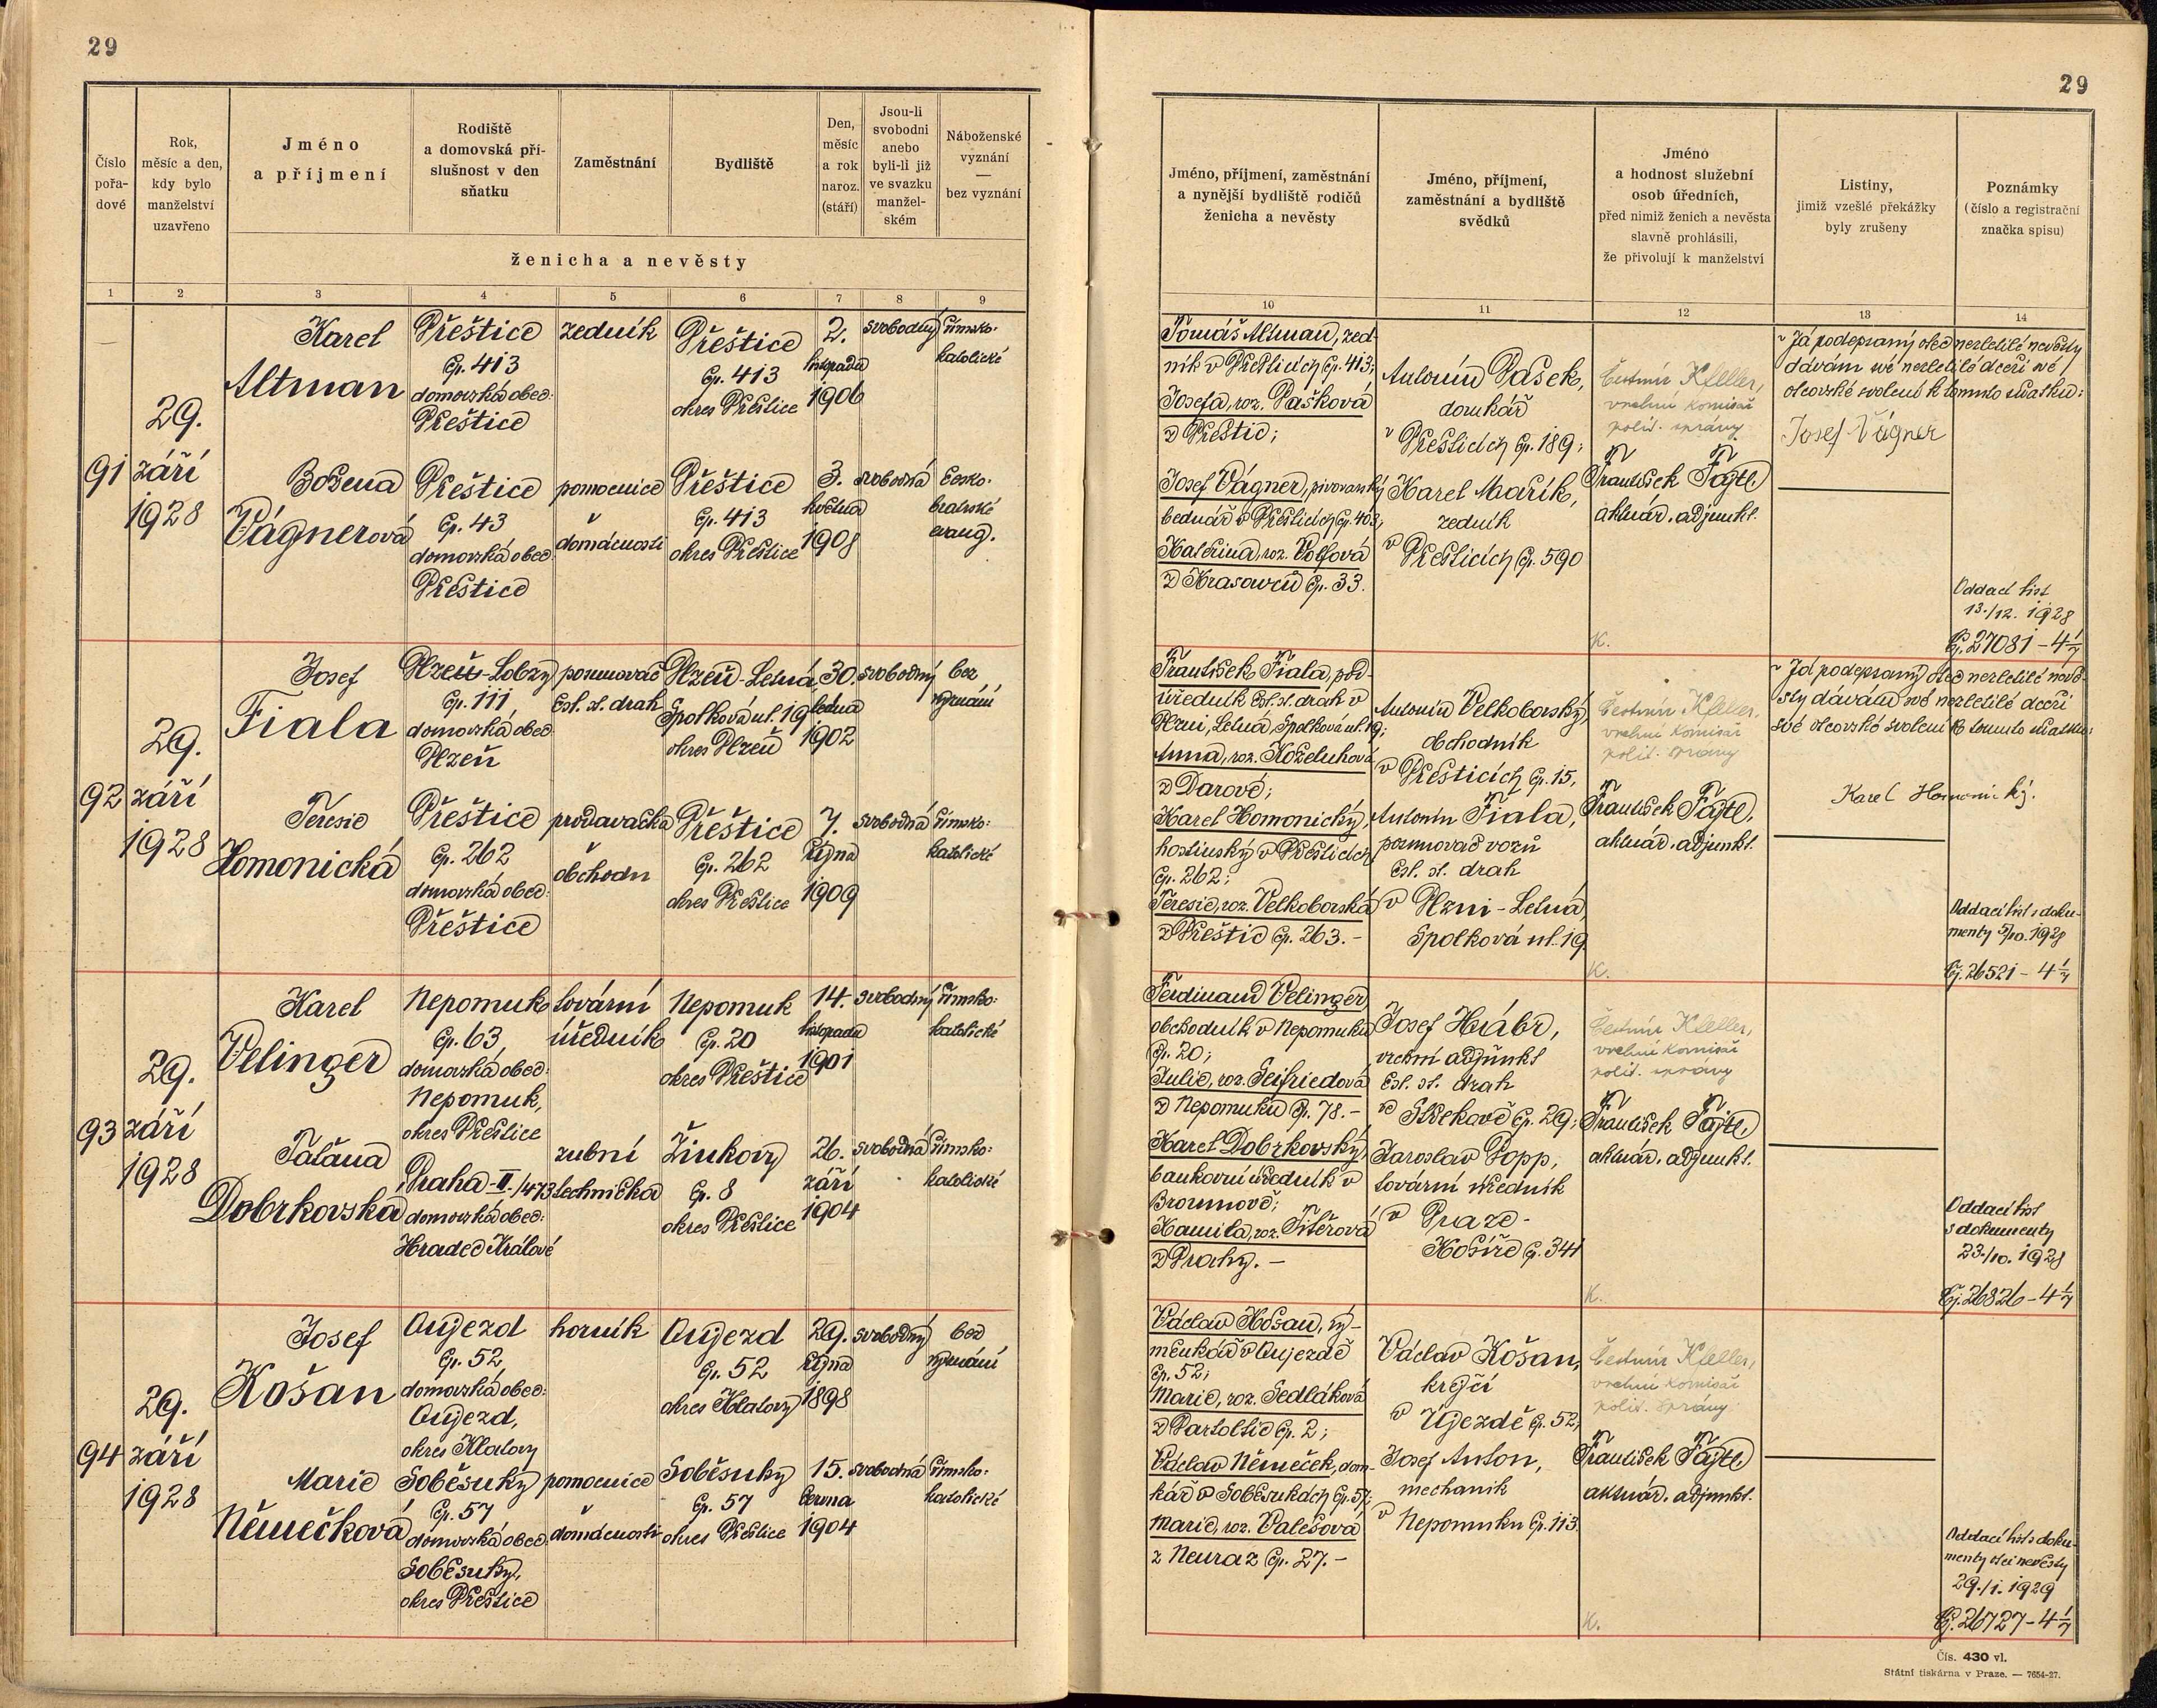 29
Číslo pořa-dové
Rok, měsíc a den, kdy bylo manželství uzavřeno
Jméno a příjmení
Rodiště a domovská pří-slušnost v den sňatku
Zaměstnání
Bydliště
Den, měsíc a rok naroz. (stáří)
Jsou-li svobodni anebo byli-li již ve svazku manžel-ském
Náboženské vyznání — bez vyznání
ženicha a nevěsty
1 2 3 4 5 6 7 8 9
91
29.
září
1928
Karel
Altman
Přeštice
čp. 413
domovská obec:
Přeštice
zedník
Přeštice
čp. 413
okres Přeštice
2.
listopadu
1906
svobodný
římsko-
katolické
Božena
Vágnerová
Přeštice
čp. 43
domovská obec:
Přeštice
pomocnice
v
domácnosti
Přeštice
čp. 413
okres Přeštice
3.
května
1908
svobodná
česko-
bratrské
evang.
92
29.
září
1928
Josef
Fiala
Plzeň-Lobzy
čp. 111,
domovská obec:
Plzeň
posunovač
čsl. st. drah
Plzeň-Letná,
Spolková ul. 19
okres Plzeň
30.
ledna
1902
svobodný
bez
vyznání
Terezie
Homonická
Přeštice
čp. 262
domovská obec:
Přeštice
prodavačka
v
obchodu
Přeštice
čp. 262
okres Přeštice
7.
října
1909
svobodná
římsko-
katolické
93
29.
září
1928
Karel
Velinger
Nepomuk
čp. 63,
domovská obec:
Nepomuk,
okres Přeštice
tovární
úředník
Nepomuk
čp. 20
okres Přeštice
14.
listopadu
1901
svobodný
římsko-
katolické
Táťana
Dobrkovská
Praha-II./473
domovská obec:
Hradec Králové
zubní
technička
Žinkovy
čp. 8
okres Přeštice
26.
září
1904
svobodná
římsko-
katolické
94
29.
září
1928
Josef
Košan
Oujezd
čp. 52,
domovská obec:
Oujezd,
okres Klatovy
horník
Oujezd
čp. 52
okres Klatovy
29.
října
1898
svobodný
bez
vyznání
Marie
Němečková
Soběsuky
čp. 57
domovská obec:
Soběsuky,
okres Přeštice
pomocnice
v
domácnosti
Soběsuky
čp. 57
okres Přeštice
15.
června
1904
svobodná
římsko-
katolické
29
Jméno, příjmení, zaměstnání a nynější bydliště rodičů ženicha a nevěsty
Jméno, příjmení, zaměstnání a bydliště svědků
Jméno a hodnost služební osob úředních, před nimiž ženich a nevěsta slavně prohlásili, že přivolují k manželství
Listiny, jimiž vzešlé překážky byly zrušeny
Poznámky (číslo a registrační značka spisu)
10 11 12 13 14
Tomáš Altman, zed-
ník v Přešticích čp. 413;
Josefa, roz. Pašková
z Přeštic;
Josef Vágner, pivovarský
bednář v Přešticích čp. 403;
Kateřina, roz. Volfová
z Krasavců čp. 33.
Antonín Pašek,
domkář
v Přešticích čp. 189;
Karel Mařík,
zedník
v Přešticích čp. 590
Čestmír Kfeller,
vrchní komisař
polit. správy
František Fajtl,
aktuár. adjunkt.
K.
Já podepsaný otec nezletilé nevěsty
dávám své nezletilé dceři své
otcovské svolení k tomuto sňatku:
Josef Vágner
Oddací list
13./12. 1928
Čj. 27081 – 4 1/7
František Fiala, pod-
úředník čsl. st. drah v
Plzni, Letná, Spolková ul. 19;
Anna, roz. Koželuhová
z Darové;
Karel Homonický,
hostinský v Přešticích
čp. 262;
Terezie, roz. Velkoborská
z Přeštic čp. 263. –
Antonín Velkoborský,
obchodník
v Přešticích čp. 15,
Antonín Fiala,
posunovač vozů
čsl. st. drah
v Plzni-Letná,
Spolková ul. 19.
Čestmír Kfeller,
vrchní komisař
polit. správy
František Fajtl,
aktuár. adjunkt.
K.
Já podepsaný otec nezletilé nevě-
sty dávám své nezletilé dceři
své otcovské svolení k tomuto sňatku:
Karel Homonický.
Oddací list s doku-
menty 5/10. 1928
Čj. 26521 – 4 1/7
Ferdinand Velinger
obchodník v Nepomuku
čp. 20;
Julie, roz. Seifriedová
z Nepomuku čp. 78. –
Karel Dobrkovský,
bankovní úředník v
Broumově;
Kamila, roz. Fišerová
z Prahy. –
Josef Hrábr,
vrchní adjunkt
čsl. st. drah
v čp. 29;
Jaroslav Popp,
tovární úředník
v Praze-
Košíře čp. 341
Čestmír Kfeller,
vrchní komisař
polit. správy
František Fajtl,
aktuár. adjunkt.
K.
Oddací list
s dokumenty
23./10. 1928
Čj. 26826 – 4 1/7
Václav Košan, vý-
měnkář v Oujezdě
čp. 52;
Marie, roz. Sedláková
z Partoltic čp. 2;
Václav Němeček, dom-
kář v Soběsukách čp. 57;
Marie, roz. Valešová
z Neuraz čp. 27. –
Václav Košan,
krejčí
v Újezdě čp. 52,
Josef Anton,
mechanik
v Nepomuku čp. 113.
Čestmír Kfeller,
vrchní komisař
polit. správy
František Fajtl,
aktuár. adjunkt.
K.
Oddací list s doku-
menty otci nevěsty
29./1. 1929
Čj. 26727 – 4 1/7
Čís. 430 vl.
Státní tiskárna v Praze. — 7654-27.